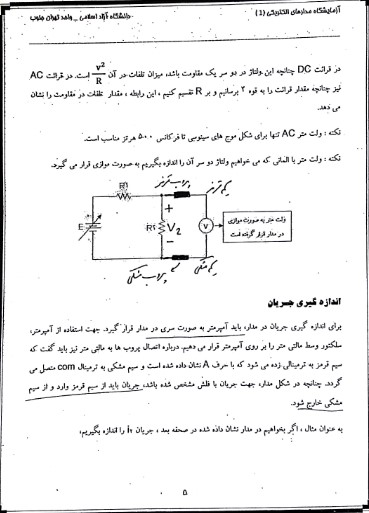 آزمایشگاه مدارهای الکتریکی (1)
دانشگاه آزاد اسلامی _ واحد تهران جنوب
در قرائت DC چنانچه این ولتاژ در دو سر یک مقاومت باشد، میزان تلفات در آن v²/R است. در قرائت AC
نیز چنانچه مقدار قرائت را به قوه ۲ برسانیم و بر R تقسیم کنیم ، این رابطه ، مقدار تلفات در مقاومت را نشان
می دهد.
نکته : ولت متر AC تنها برای شکل موج های سینوسی تا فرکانس ۵۰۰ هرتز مناسب است.
نکته : ولت متر با المانی که می خواهیم ولتاژ دو سر آن را اندازه بگیریم به صورت موازی قرار می گیرد.
پراب قرمز
سیم قرمز
R1
E
+
R2
V2
−
V
ولت متر به صورت موازی
در مدار قرار گرفته است
پراب مشکی
سیم مشکی
اندازه گیری جریان
برای اندازه گیری جریان در مدار، باید آمپرمتر به صورت سری در مدار قرار گیرد. جهت استفاده از آمپرمتر،
سلکتور وسط مالتی متر را بر روی آمپرمتر قرار می دهیم. درباره اتصال پروب ها به مالتی متر نیز باید گفت که
سیم قرمز به ترمینالی زده می شود که با حرف A نشان داده شده است و سیم مشکی به ترمینال com متصل می
گردد. چنانچه در شکل مدار، جهت جریان با فلش مشخص شده باشد، جریان باید از سیم قرمز وارد و از سیم
مشکی خارج شود.
به عنوان مثال ، اگر بخواهیم در مدار نشان داده شده در صفحه بعد ، جریان i۲ را اندازه بگیریم،
۵